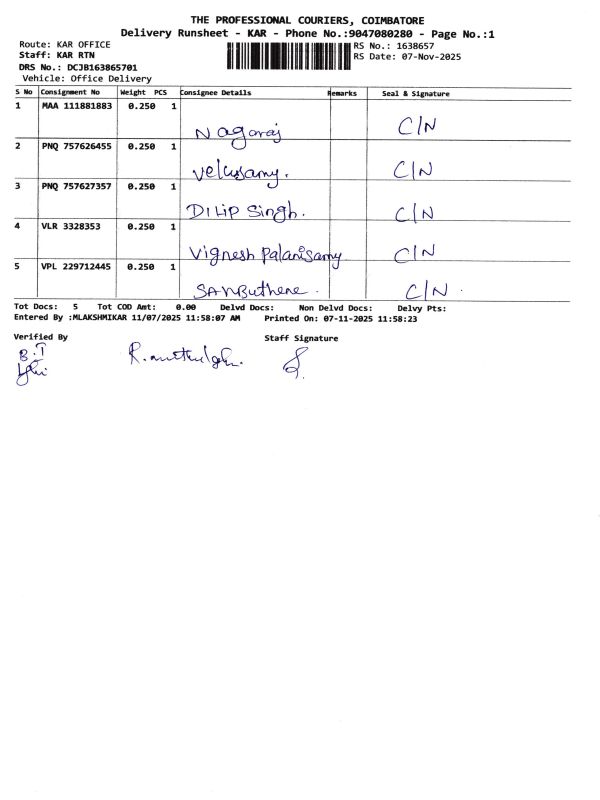 THE PROFESSIONAL COURIERS, COIMBATORE
Delivery Runsheet - KAR - Phone No.:9047080280 - Page No.:1
Route: KAR OFFICE RS No.: 1638657
Staff: KAR RTN RS Date: 07-Nov-2025
DRS No.: DCJB163865701
Vehicle: Office Delivery
S No Consignment No Weight PCS Consignee Details Remarks Seal & Signature
1 MAA 111881883 0.250 1
Nagaraj C/N
2 PNQ 757626455 0.250 1
Velusamy. C/N
3 PNQ 757627357 0.250 1
DILIP Singh. C/N
4 VLR 3328353 0.250 1
Vignesh Palanisamy C/N
5 VPL 229712445 0.250 1
C/N.
Tot Docs: 5 Tot COD Amt: 0.00 Delvd Docs: Non Delvd Docs: Delvy Pts:
Entered By :MLAKSHMIKAR 11/07/2025 11:58:07 AM Printed On: 07-11-2025 11:58:23
Verified By Staff Signature
B.T